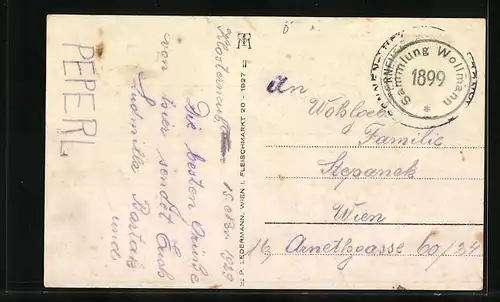 PEPERL
Klosterneuburg 15. Okt. 1929
Die besten Grüße
von hier sendet Euch
Ludmilla Bartak
und
P. LEDERMANN, WIEN I, FLEISCHMARKT 20 - 1927
Sammlung Wollmann
1899
*
An
Wohlgeb
Familie
Stepanek
Wien
16, Arnethgasse 60/34